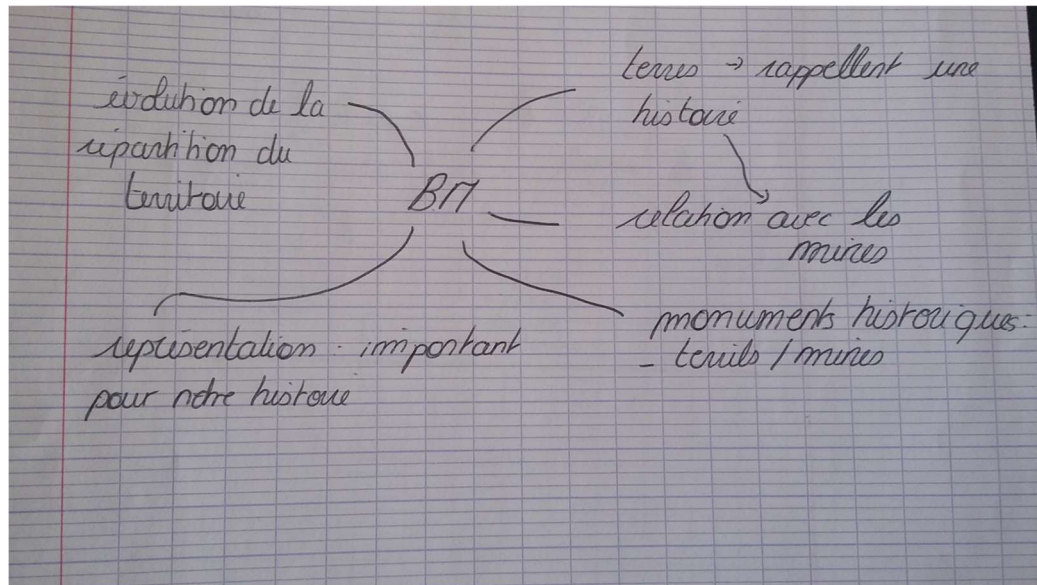 évolution de la
répartition du
territoire
BM
terres → rappellent une
histoire
relation avec les
mines
monuments historiques :
- terrils / mines
représentation : important
pour notre histoire